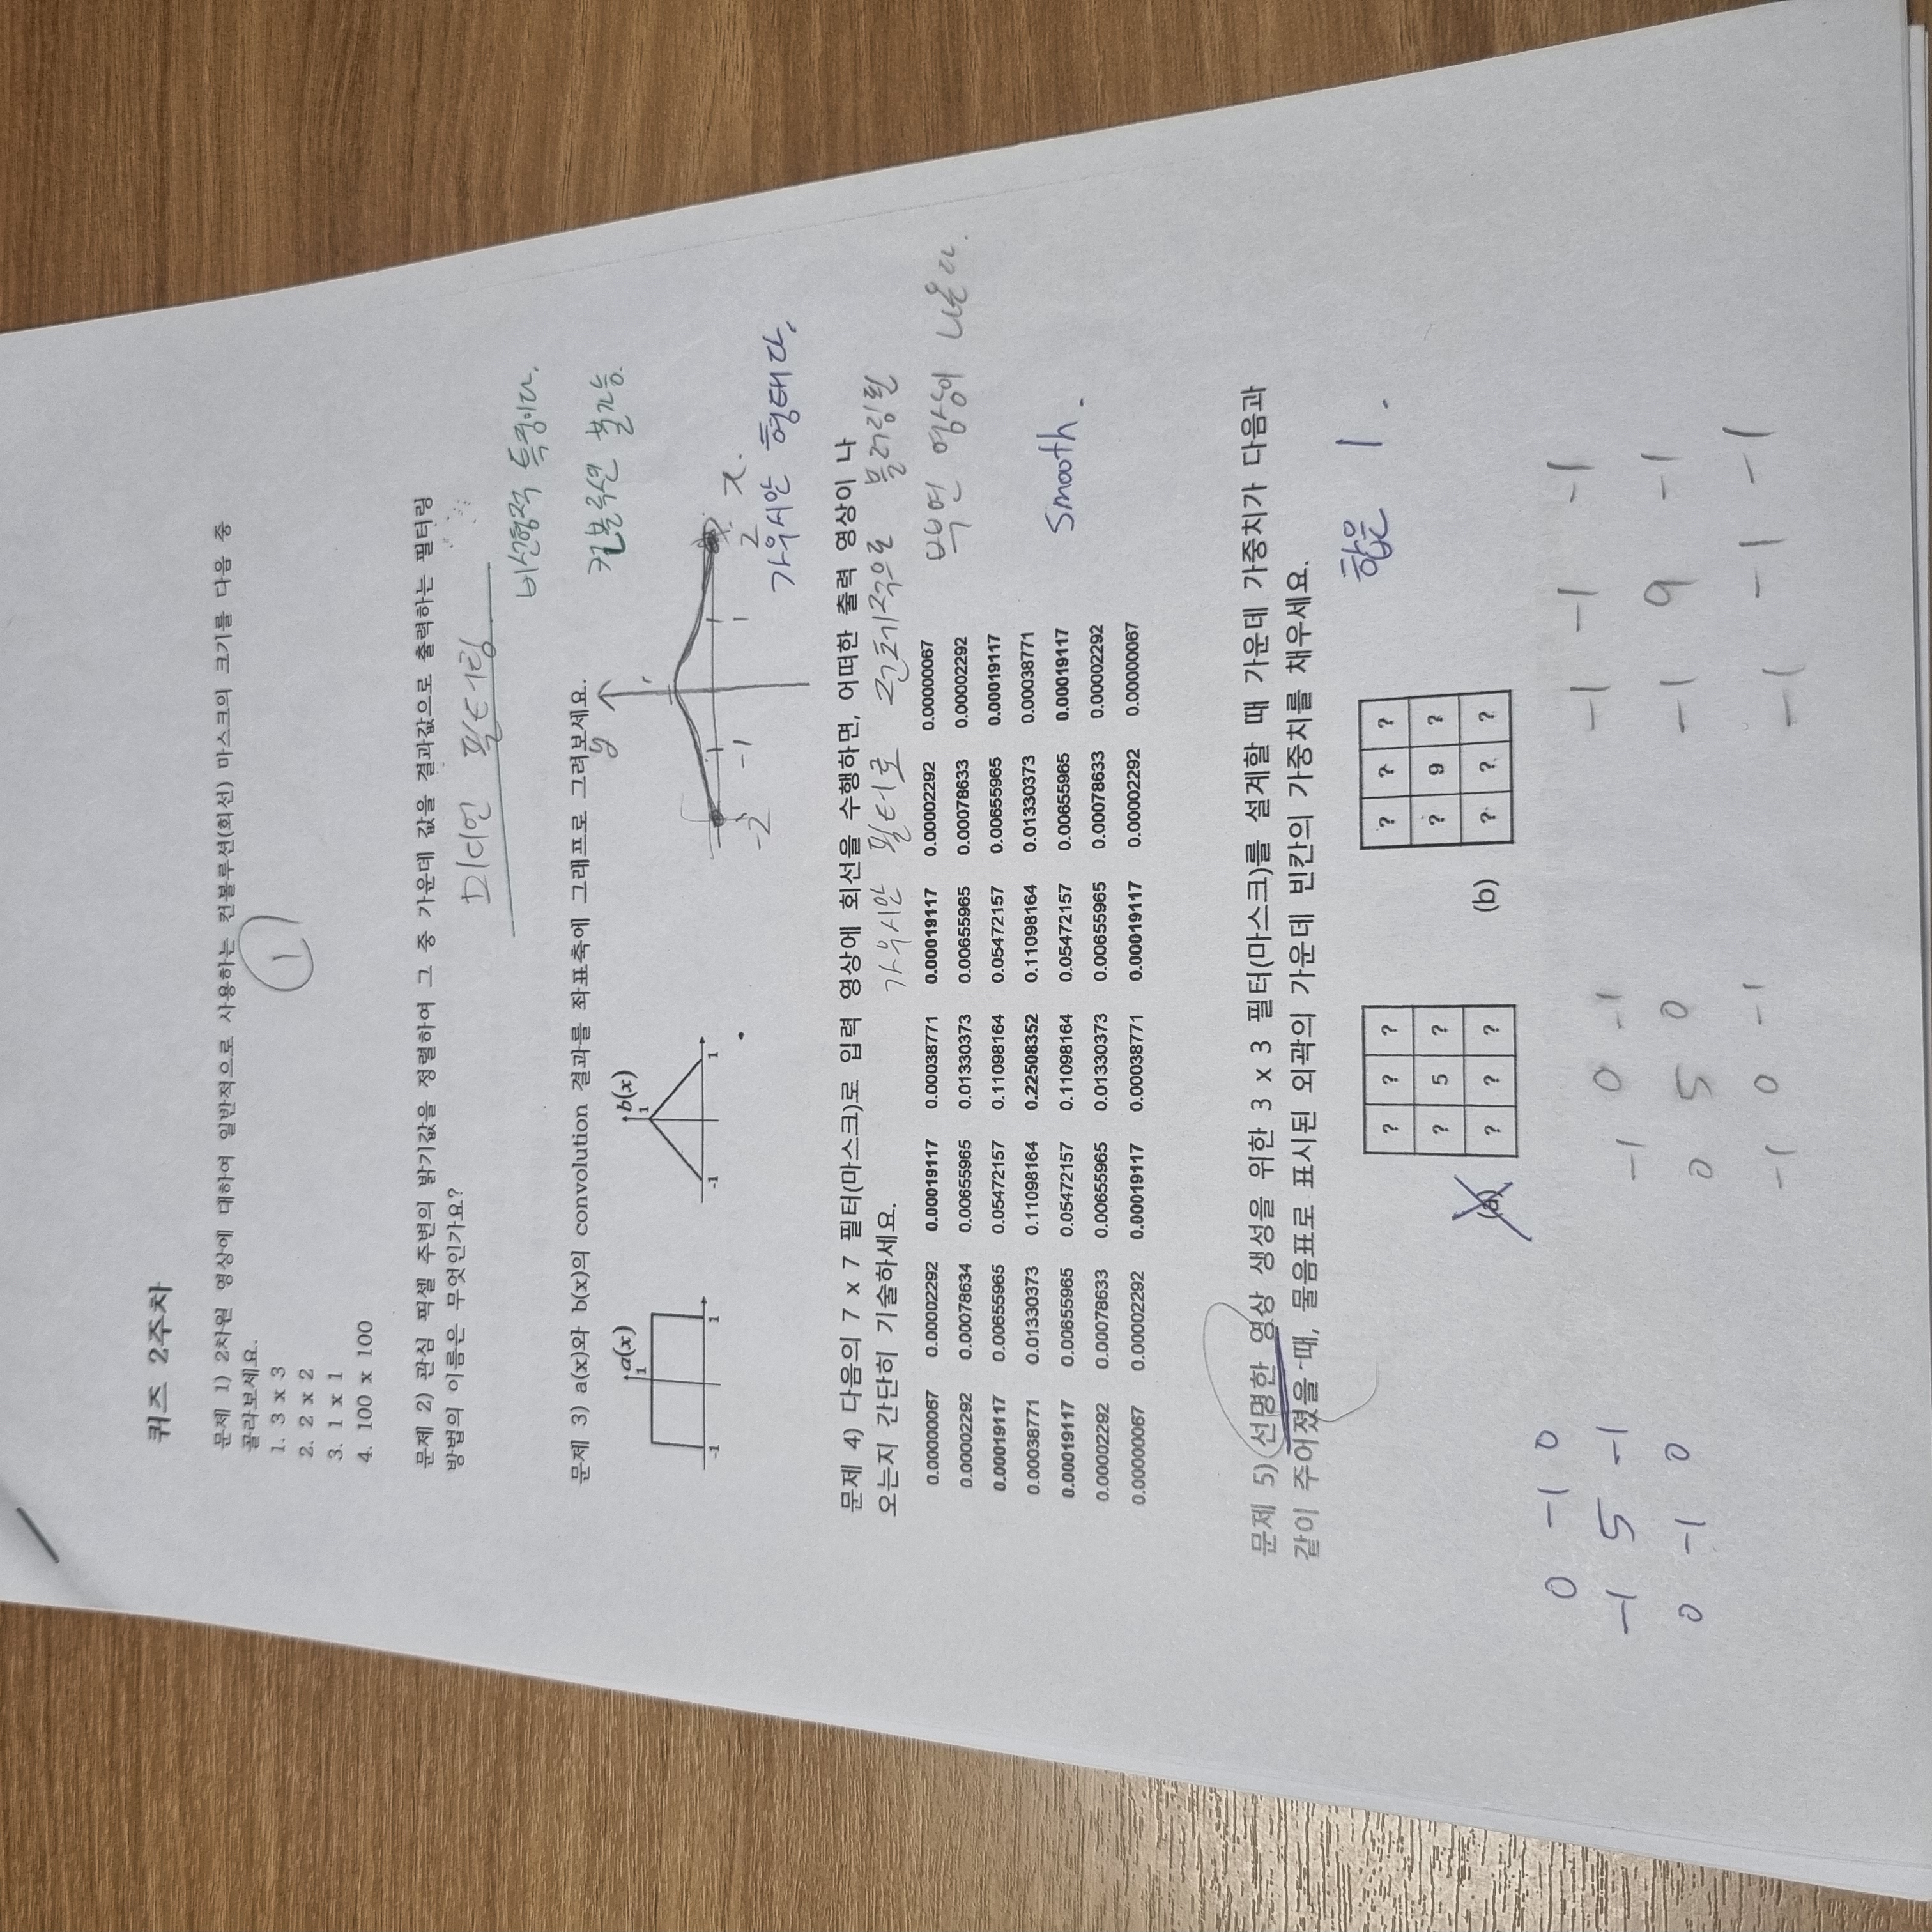 퀴즈 2주차
문제 1) 2차원 영상에 대하여 일반적으로 사용하는 컨볼루션(회선) 마스크의 크기를 다음 중
골라보세요.
1. 3 x 3
2. 2 x 2
3. 1 x 1
4. 100 x 100
1
문제 2) 관심 픽셀 주변의 밝기값을 정렬하여 그 중 가운데 값을 결과값으로 출력하는 필터링
방법의 이름은 무엇인가요?
미디언 필터링
비선형적 특징이다.
컨볼루션 불가능.
문제 3) a(x)와 b(x)의 convolution 결과를 좌표축에 그래프로 그려보세요.
a(x)
1
-1 1
b(x)
1
-1 1
y
-2 -1 1 2 x.
가우시안 형태다.
문제 4) 다음의 7 x 7 필터(마스크)로 입력 영상에 회선을 수행하면, 어떠한 출력 영상이 나
오는지 간단히 기술하세요.
가우시안 필터로 전체적으로 블러링된
뿌연 영상이 나온다.
0.00000067 0.00002292 0.00019117 0.00038771 0.00019117 0.00002292 0.00000067
0.00002292 0.00078634 0.00655965 0.01330373 0.00655965 0.00078633 0.00002292
0.00019117 0.00655965 0.05472157 0.11098164 0.05472157 0.00655965 0.00019117
0.00038771 0.01330373 0.11098164 0.22508352 0.11098164 0.01330373 0.00038771
0.00019117 0.00655965 0.05472157 0.11098164 0.05472157 0.00655965 0.00019117
0.00002292 0.00078633 0.00655965 0.01330373 0.00655965 0.00078633 0.00002292
0.00000067 0.00002292 0.00019117 0.00038771 0.00019117 0.00002292 0.00000067
Smooth.
문제 5) 선명한 영상 생성을 위한 3 x 3 필터(마스크)를 설계할 때 가운데 가중치가 다음과
같이 주어졌을 때, 물음표로 표시된 외곽의 가운데 빈칸의 가중치를 채우세요.
합은 1.
(a)
? ? ?
? 5 ?
? ? ?
(b)
? ? ?
? 9 ?
? ? ?
0 -1 0
-1 5 -1
0 -1 0
-1 0 -1
0 5 0
-1 0 -1
-1 -1 -1
-1 9 -1
-1 -1 -1